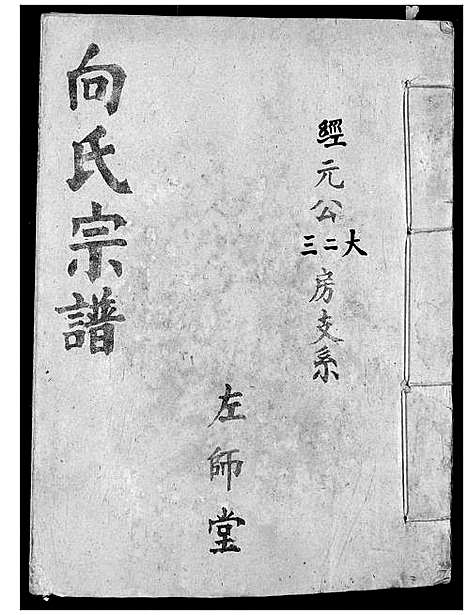 經元公
大二三
房支系
左師堂
向氏宗譜